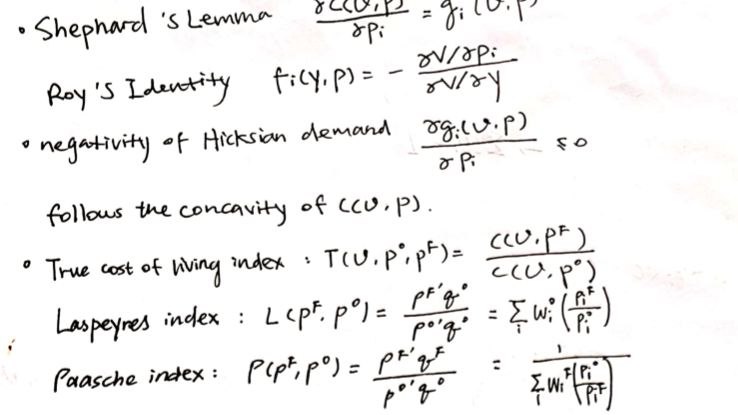 • Shephard's Lemma ∂C(U,P)/∂Pi = gi(U.P)
Roy's Identity fi(y,p) = - (∂V/∂Pi)/(∂V/∂y)
• negativity of Hicksian demand ∂gi(U.P)/∂Pi ≤ 0
follows the concavity of C(U.P).
• True cost of living index : T(U.P°,Pᶠ) = C(U,Pᶠ)/C(U,P°)
Laspeyres index : L(Pᶠ,P°) = Pᶠ'q°/P°'q° = Σi Wi°(Piᶠ/Pi°)
Paasche index : P(Pᶠ,P°) = Pᶠ'qᶠ/P°'q° = 1/(Σi Wiᶠ(Pi°/Piᶠ))